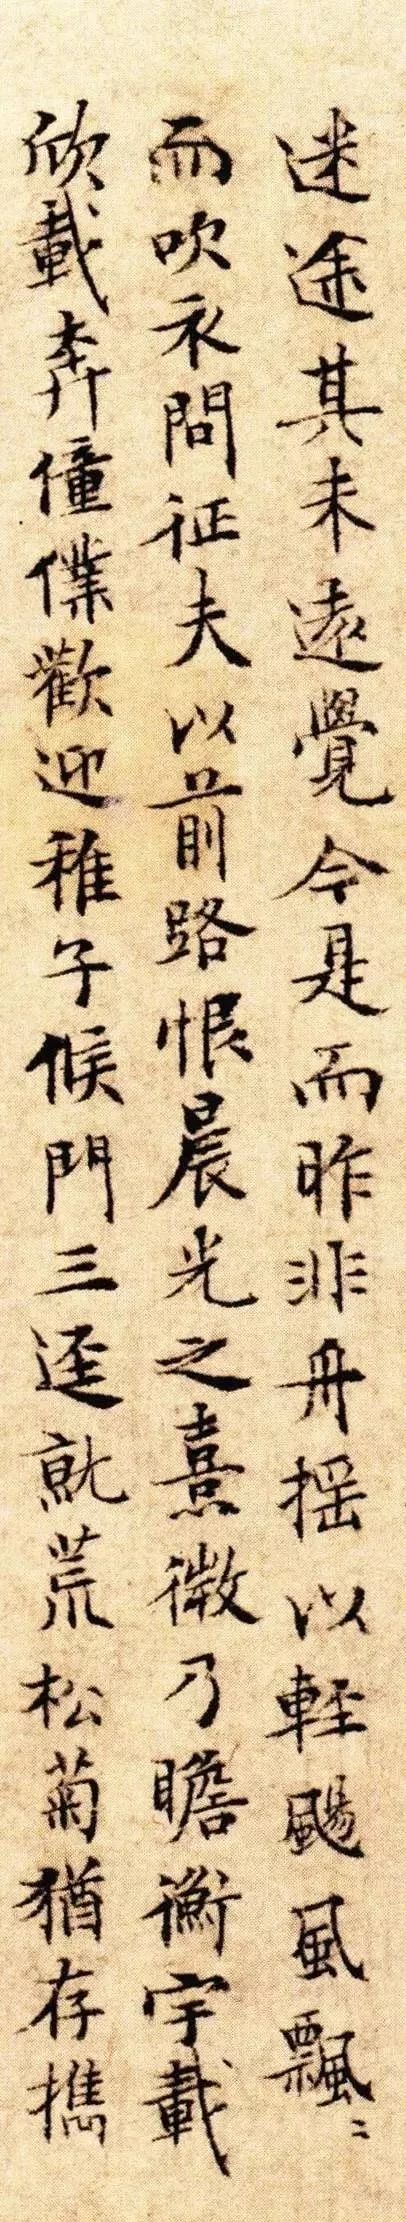 迷途其未遠覺今是而昨非舟搖以輕颺風飄〻
而吹衣問征夫以前路恨晨光之熹微乃瞻衡宇載
欣載奔僮僕歡迎稚子候門三逕就荒松菊猶存携